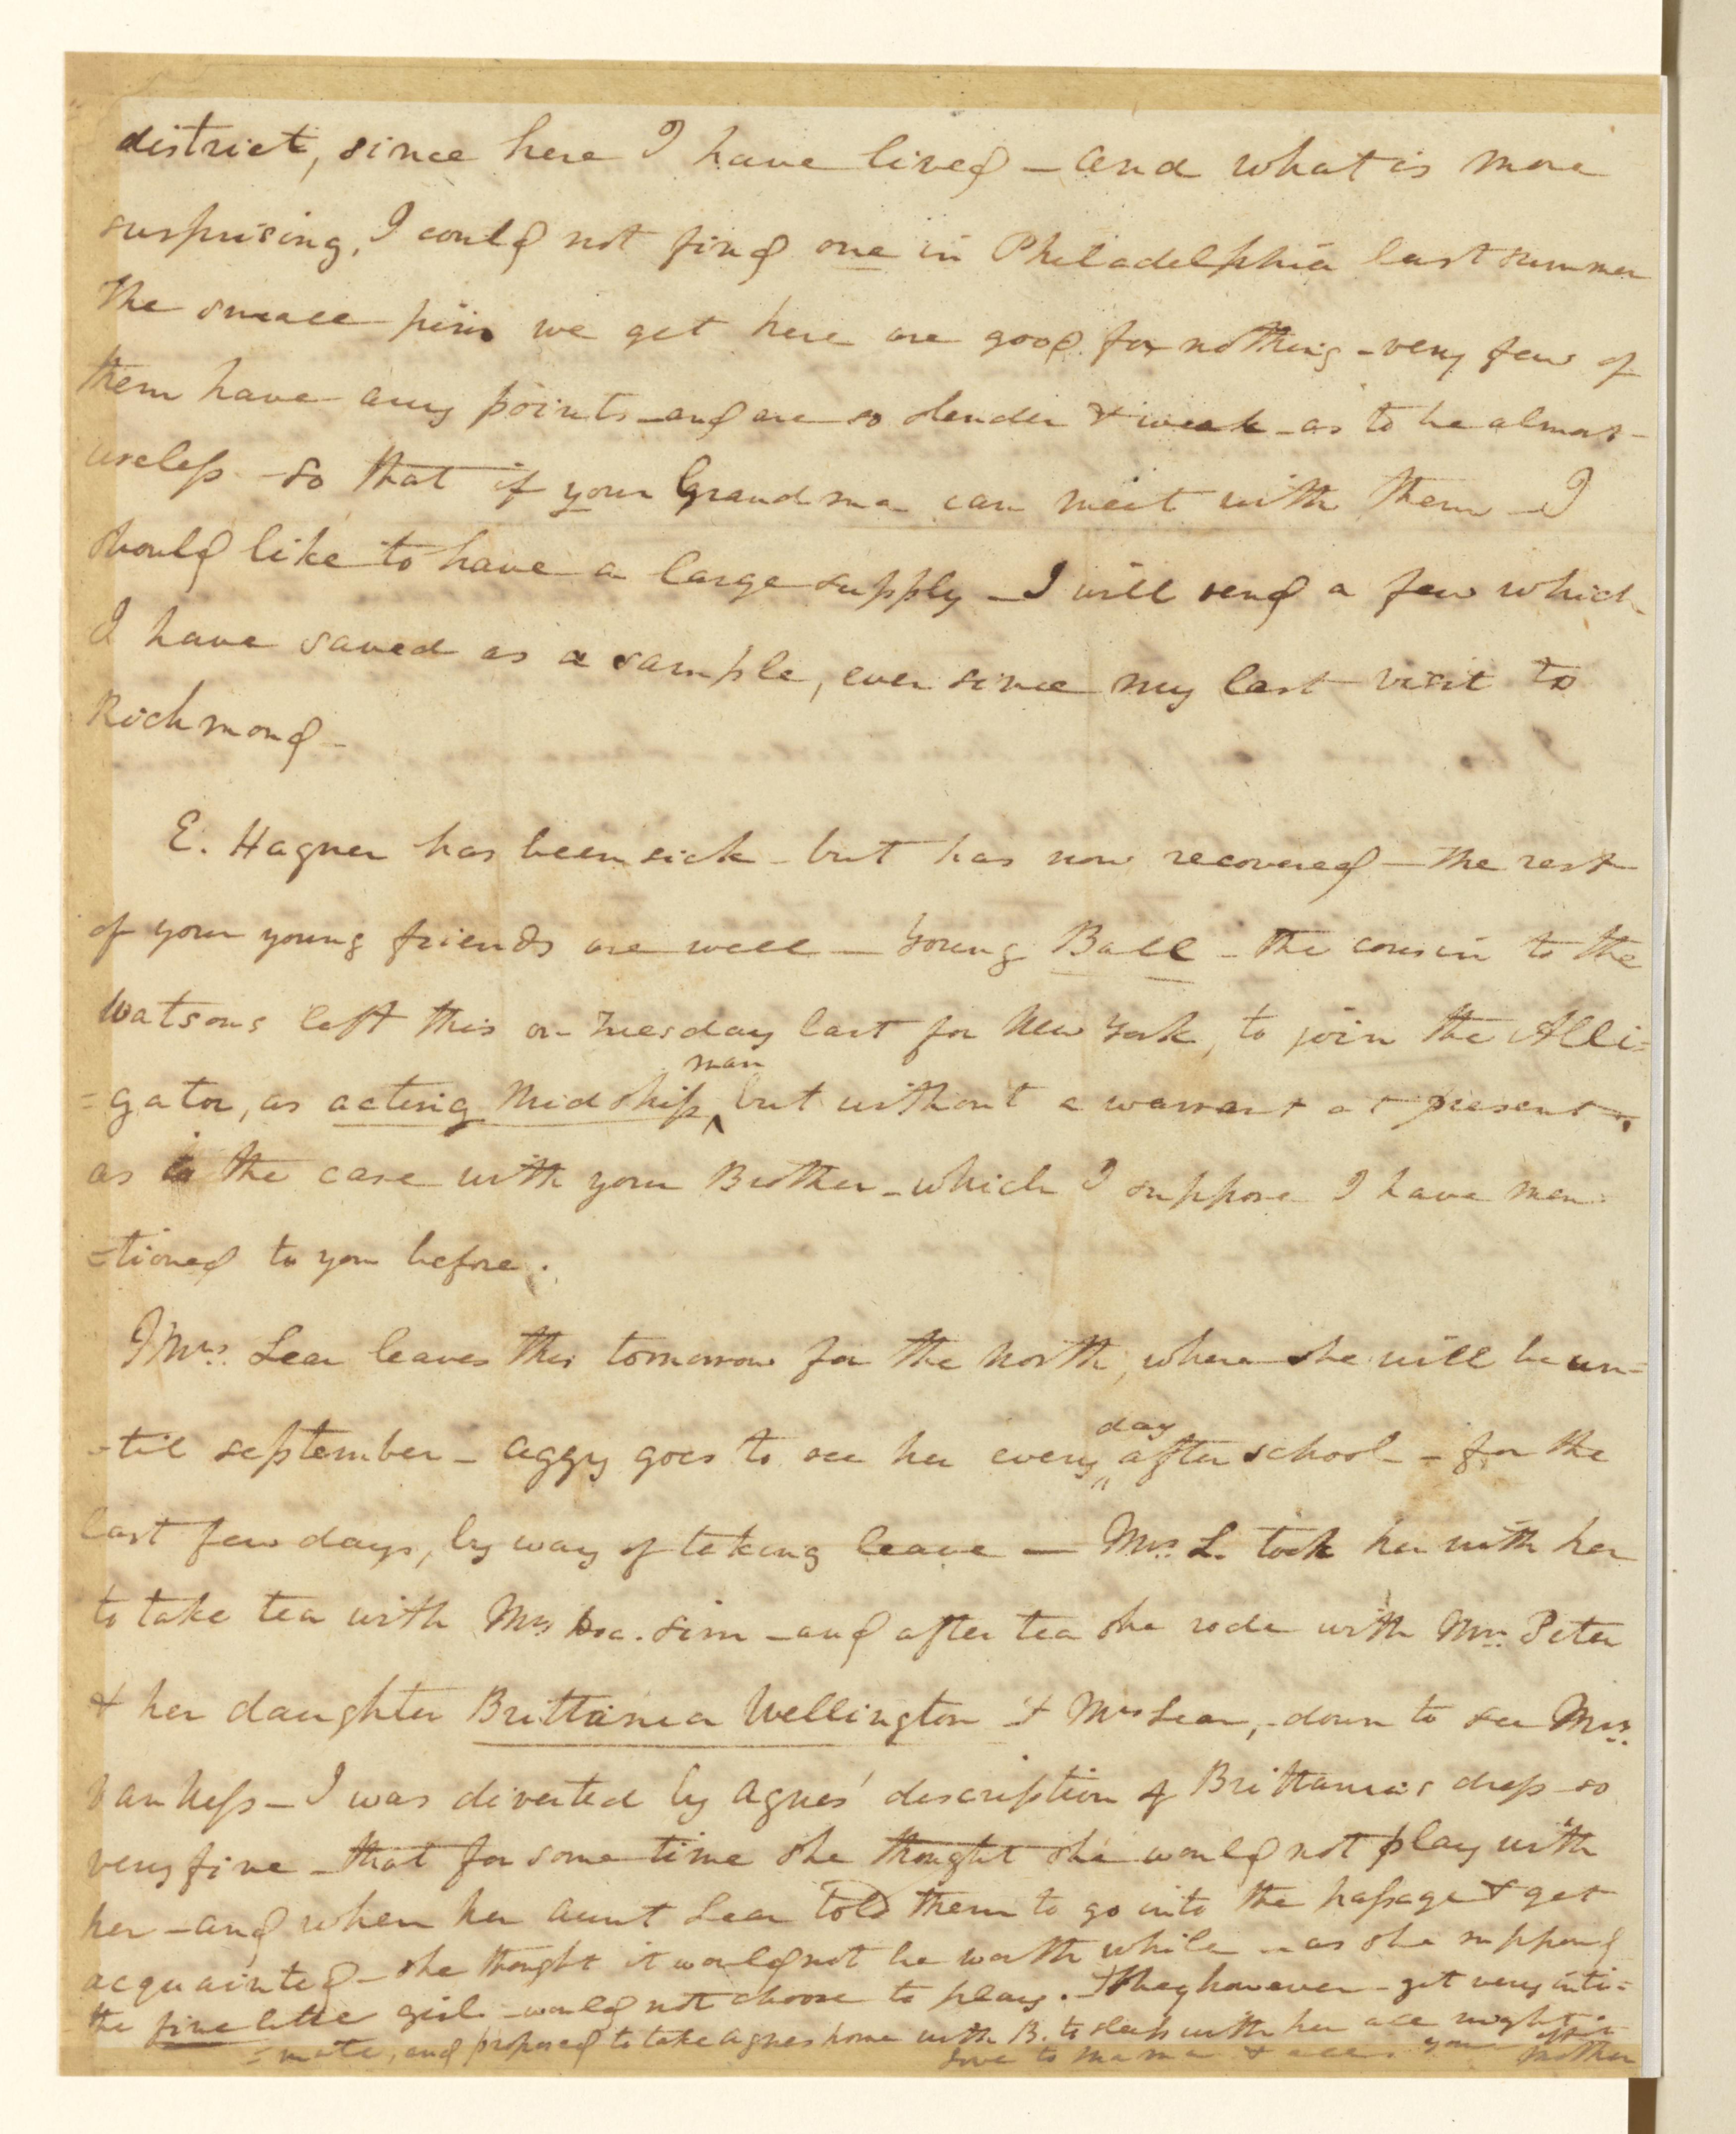 district, since here I have lived – and what is more
surprising, I could not find one in Philadelphia last summer
The small pins we get here are good for nothing – very few of
them have any points – and are so slender & weak – as to be almost
useless – so that if your Grandma can meet with them – I
should like to have a large supply – I will send a few which
I have saved as a sample, ever since my last visit to
Richmond –
E. Hagner has been sick – but has now recovered – the rest
of your young friends are well – Young Ball – the cousin to the
Watsons left this on Tuesday last for New York, to join the Alli=
=gator, as acting Midship^man but without a warrant at present,
as is the case with your Brother – which I suppose I have men=
=tioned to you before.
Mrs. Lear leaves this tomorrow for the North, where she will be un=
=til september – Aggy goes to see her every ^day after school – for the
last few days, by way of taking leave — Mrs. L. took her with her
to take tea with Mrs Doc. Sim – and after tea she rode with Mrs. Peter
& her daughter Brittania Wellington & Mrs Lear, – down to see Mrs.
Van Ness – I was diverted by Agnes' description of Brittania's dress – so
very fine – that for some time she thought she would not play with
her – and when her aunt Lear told them to go into the passage & get
acquainted – she thought it would not be worth while – as she supposed
the fine little girl – would not choose to play. – They however – got very inti=
=mate, and proposed to take Agnes home with B. to sleep with her all night –
Love to Mama & all. your Mother